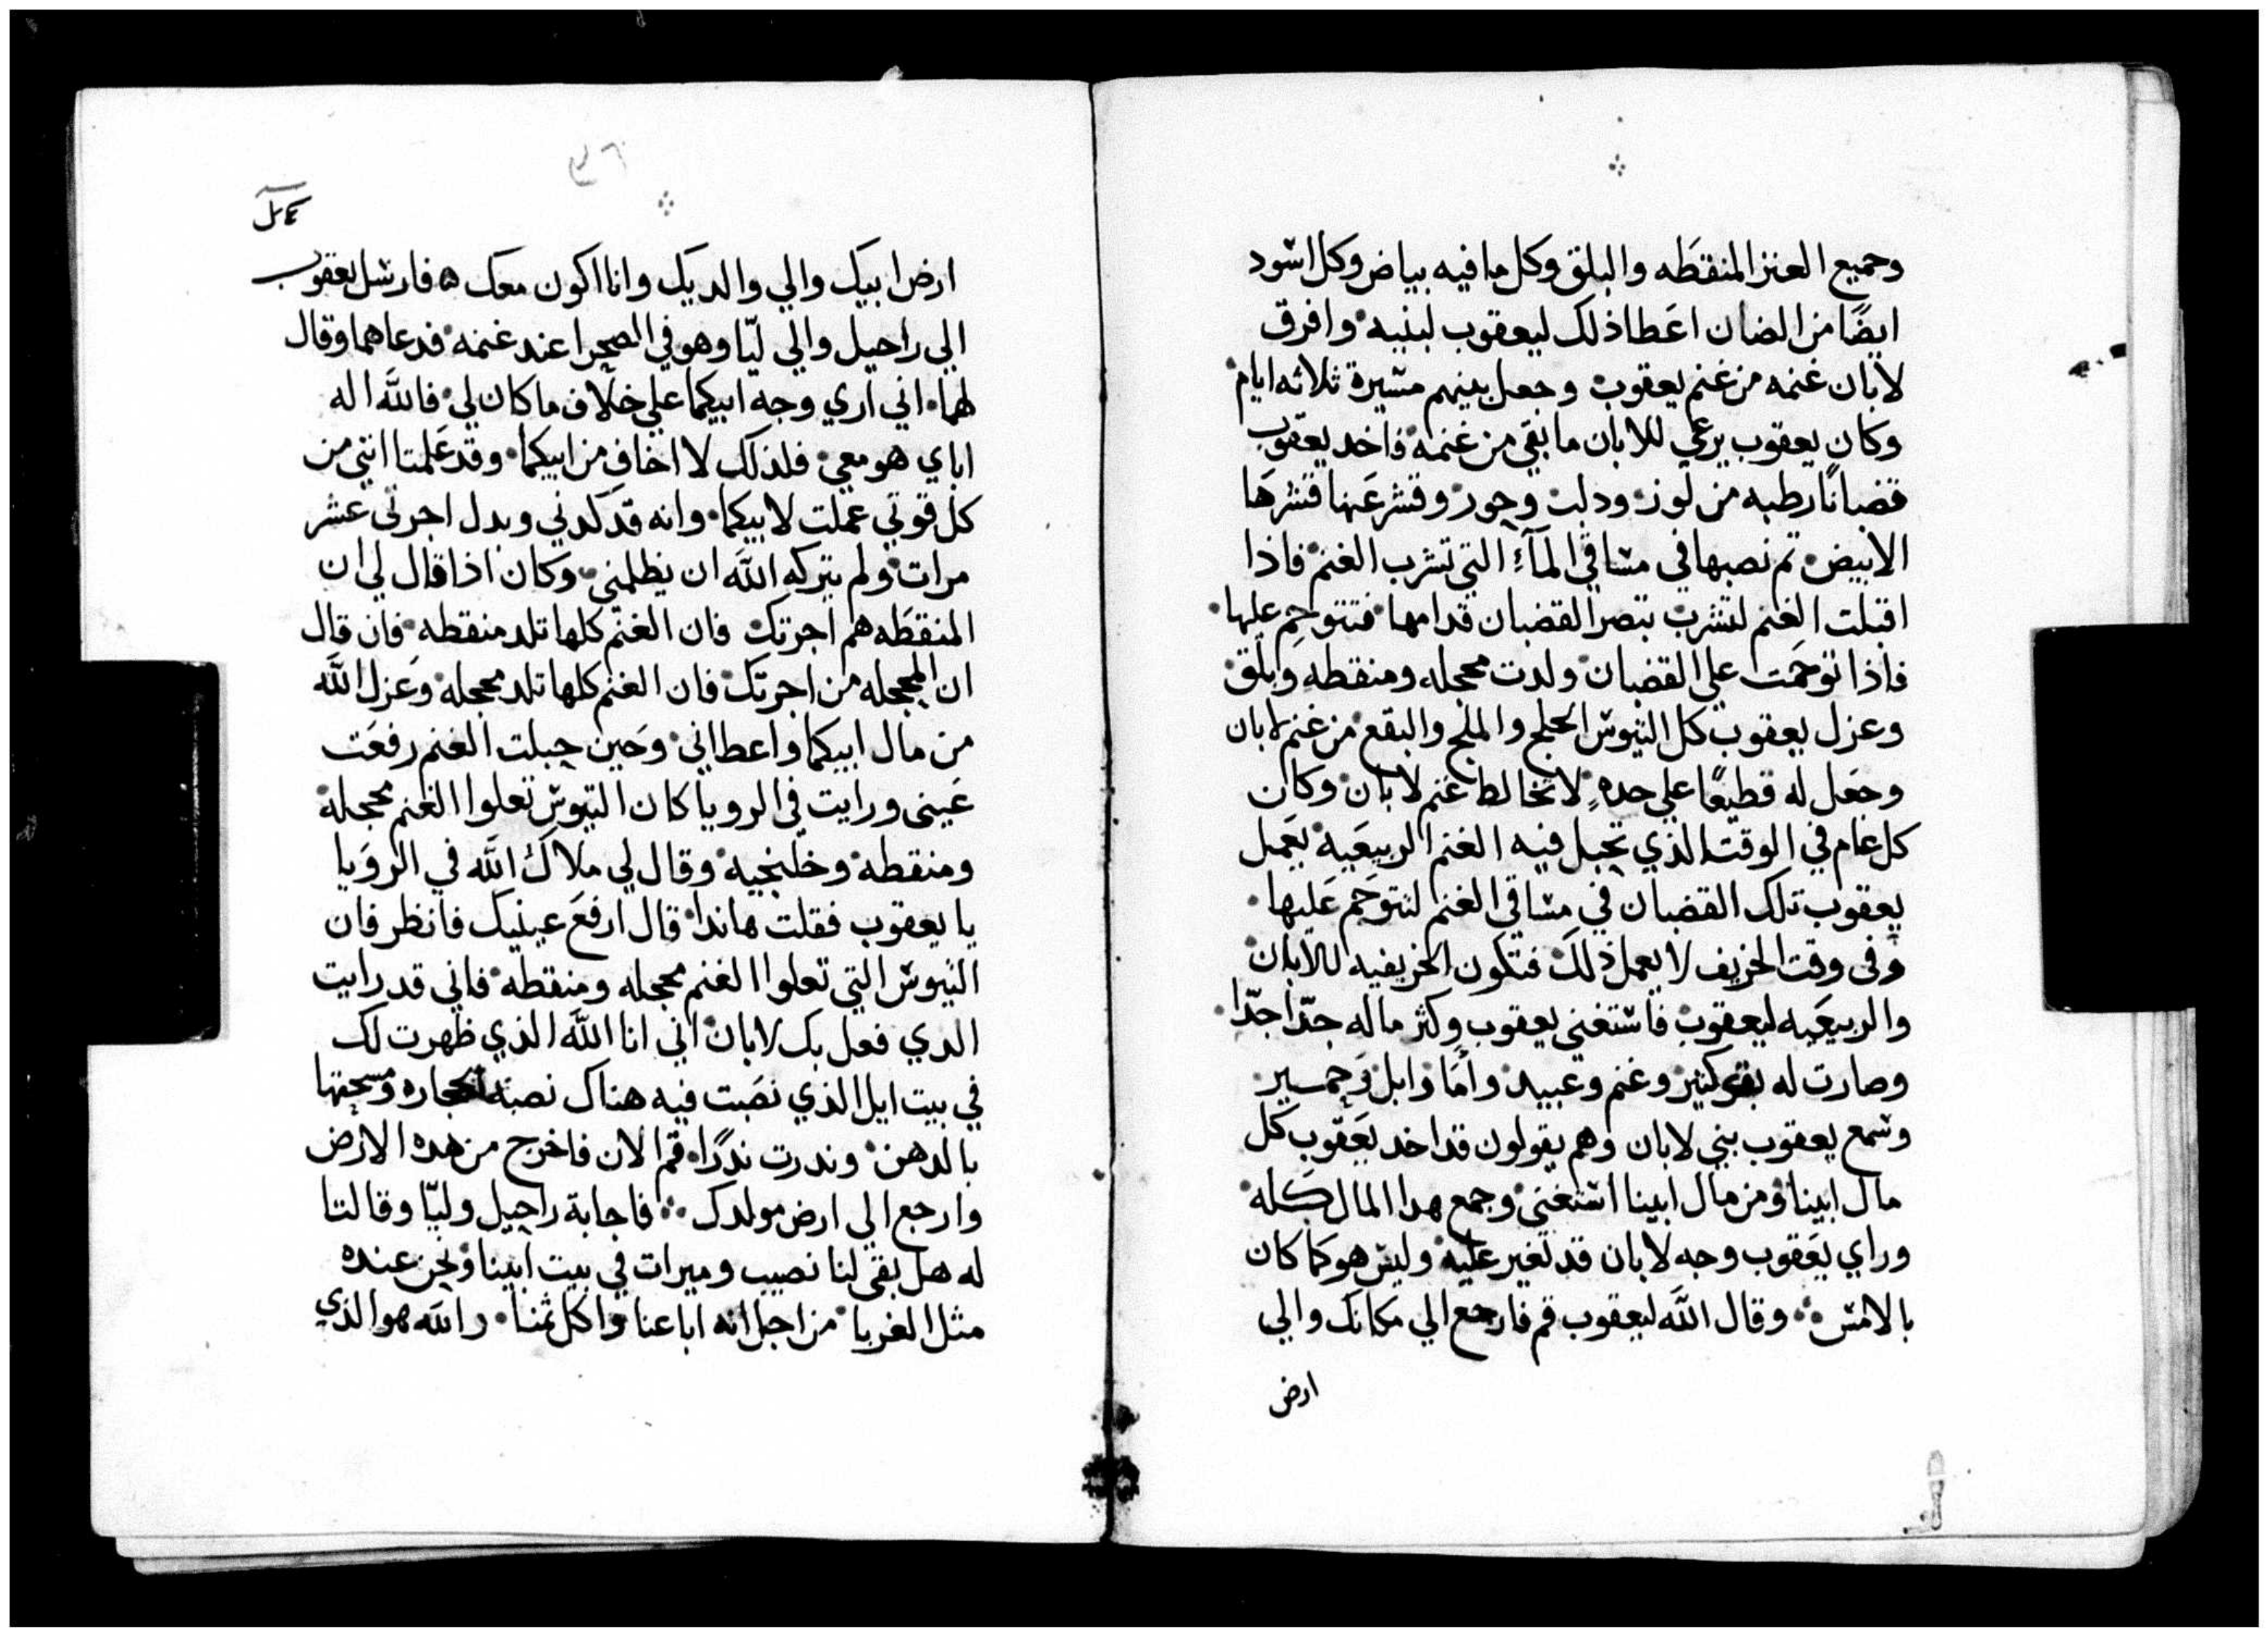 وجميع العنز المنقطه والبلق وكل ما فيه بياض وكل اسود
ايضًا من الضان اعطا ذلك ليعقوب لبنيه وافرق
لابان غنمه من غنم يعقوب وجعل بينهم مسيرة ثلاثه ايام
وكان يعقوب يرعي للابان ما بقي من غنمه فاخد يعقوب
قضبانًا رطبه من لوز ودلب وجوز وقشر عنها قشرها
الابيض تم نصبها في مساقي المآء التي تشرب الغنم فاذا
اقبلت الغنم لتشرب تبصر القضبان قدامها فتتوحم عليها
فاذا توحمت علي القضبان ولدت محجله ومنقطه وبلق
وعزل يعقوب كل التيوس الحلج والملح والبقع من غنم لابان
وجعل له قطيعًا علي حدهٍ لا تخالط غنم لابان وكان
كل عام في الوقت الذي تحبل فيه الغنم الربيعيه يعمل
يعقوب تلك القضبان في مساقي الغنم لتتوحم عليها
وفي وقت الخريف لا يعمل ذلك فتكون الخريفيه للابان
والربيعيه ليعقوب فاستغني يعقوب وكثر ماله جدّا جدّا
وصارت له بقر كثير وغنم وعبيد وامًا وابل وحمير
وسمع يعقوب بني لابان وهم يقولون قد اخد يعقوب كل
مال ابينا ومن مال ابينا استغني وجمع هدا المال كله
وراي يعقوب وجه لابان قد تغير عليه وليس هو كما كان
بالامس وقال الله ليعقوب قم فارجع الي مكانك والي
ارض
ارض ابيك والي والديك وانا اكون معك ٥ فارسل يعقوب
الي راحيل والي ليّا وهو في الصحرا عند غنمه فدعاهما وقال
لهما اني اري وجه ابيكما علي خلاف ما كان لي فالله اله
اباي هو معي فلذلك لا اخاف من ابيكما وقد علمتا انني من
كل قوتي عملت لابيكما وانه قد كدني وبدل اجرتي عشر
مرات ولم يتركه الله ان يظلمني وكان اذا قال لي ان
المنقطه هم اجرتك فان الغنم كلها تلد منقطه فان قال
ان المحجله من اجرتك فان الغنم كلها تلد محجله وعزل الله
من مال ابيكما واعطاني وحين حبلت الغنم رفعت
عيني ورايت في الرويا كان التيوس تعلوا الغنم محجله
ومنقطه وخلنجيه وقال لي ملاك الله في الرويا
يا يعقوب فقلت هاندا قال ارفع عينيك فانظر فان
التيوس التي تعلوا الغنم محجله ومنقطه فاني قد رايت
الدي فعل بك لابان اني انا الله الذي ظهرت لك
في بيت ايل الذي نصبت فيه هناك نصبة الحجاره ومسحتها
بالدهن وندرت ندرًا قم الان فاخرج من هده الارض
وارجع الي ارض مولدك فاجابة راحيل وليّا وقالتا
له هل بقي لنا نصيب وميرات في بيت ابينا ونحن عنده
مثل الغربا من اجل انه اباعنا واكل ثمننا والله هو الذي